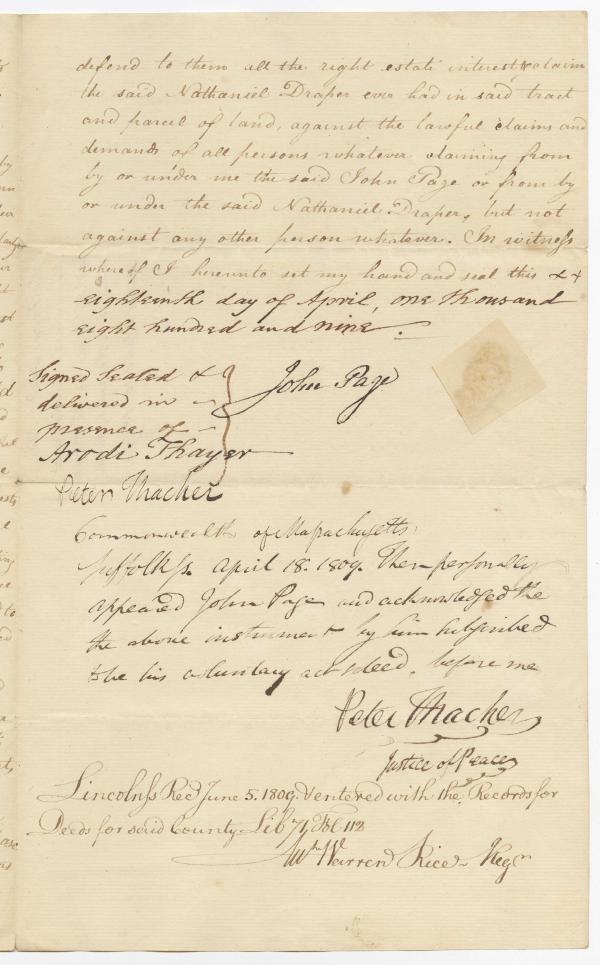 defend to them all the right estate interest, & claim
the said Nathaniel Draper ever had in said tract
and parcel of land, against the lawful claims and
demands of all persons whatever claiming from
by or under me the said John Page or from by
or under the said Nathaniel Draper, but not
against any other person whatever. In witness
whereof I hereunto set my hand and seal this
eighteenth day of April, one thousand
eight hundred and nine.
Signed Sealed &
delivered in
presence of
John Page
Arodi Thayer
Peter Thacher
Commonwealth of Massachusetts
Suffolk ss. April 18. 1809. Then personally
appeared John Page and acknowledged the
the above instrument by him subscribed
to be his voluntary act & deed. before me
Peter Thacher
Justice of Peace
Lincoln ss Recd June 5. 1809. & entered with the Records for
Deeds for said County Lib 71 Fol 112
Attr Warren Rice Regr